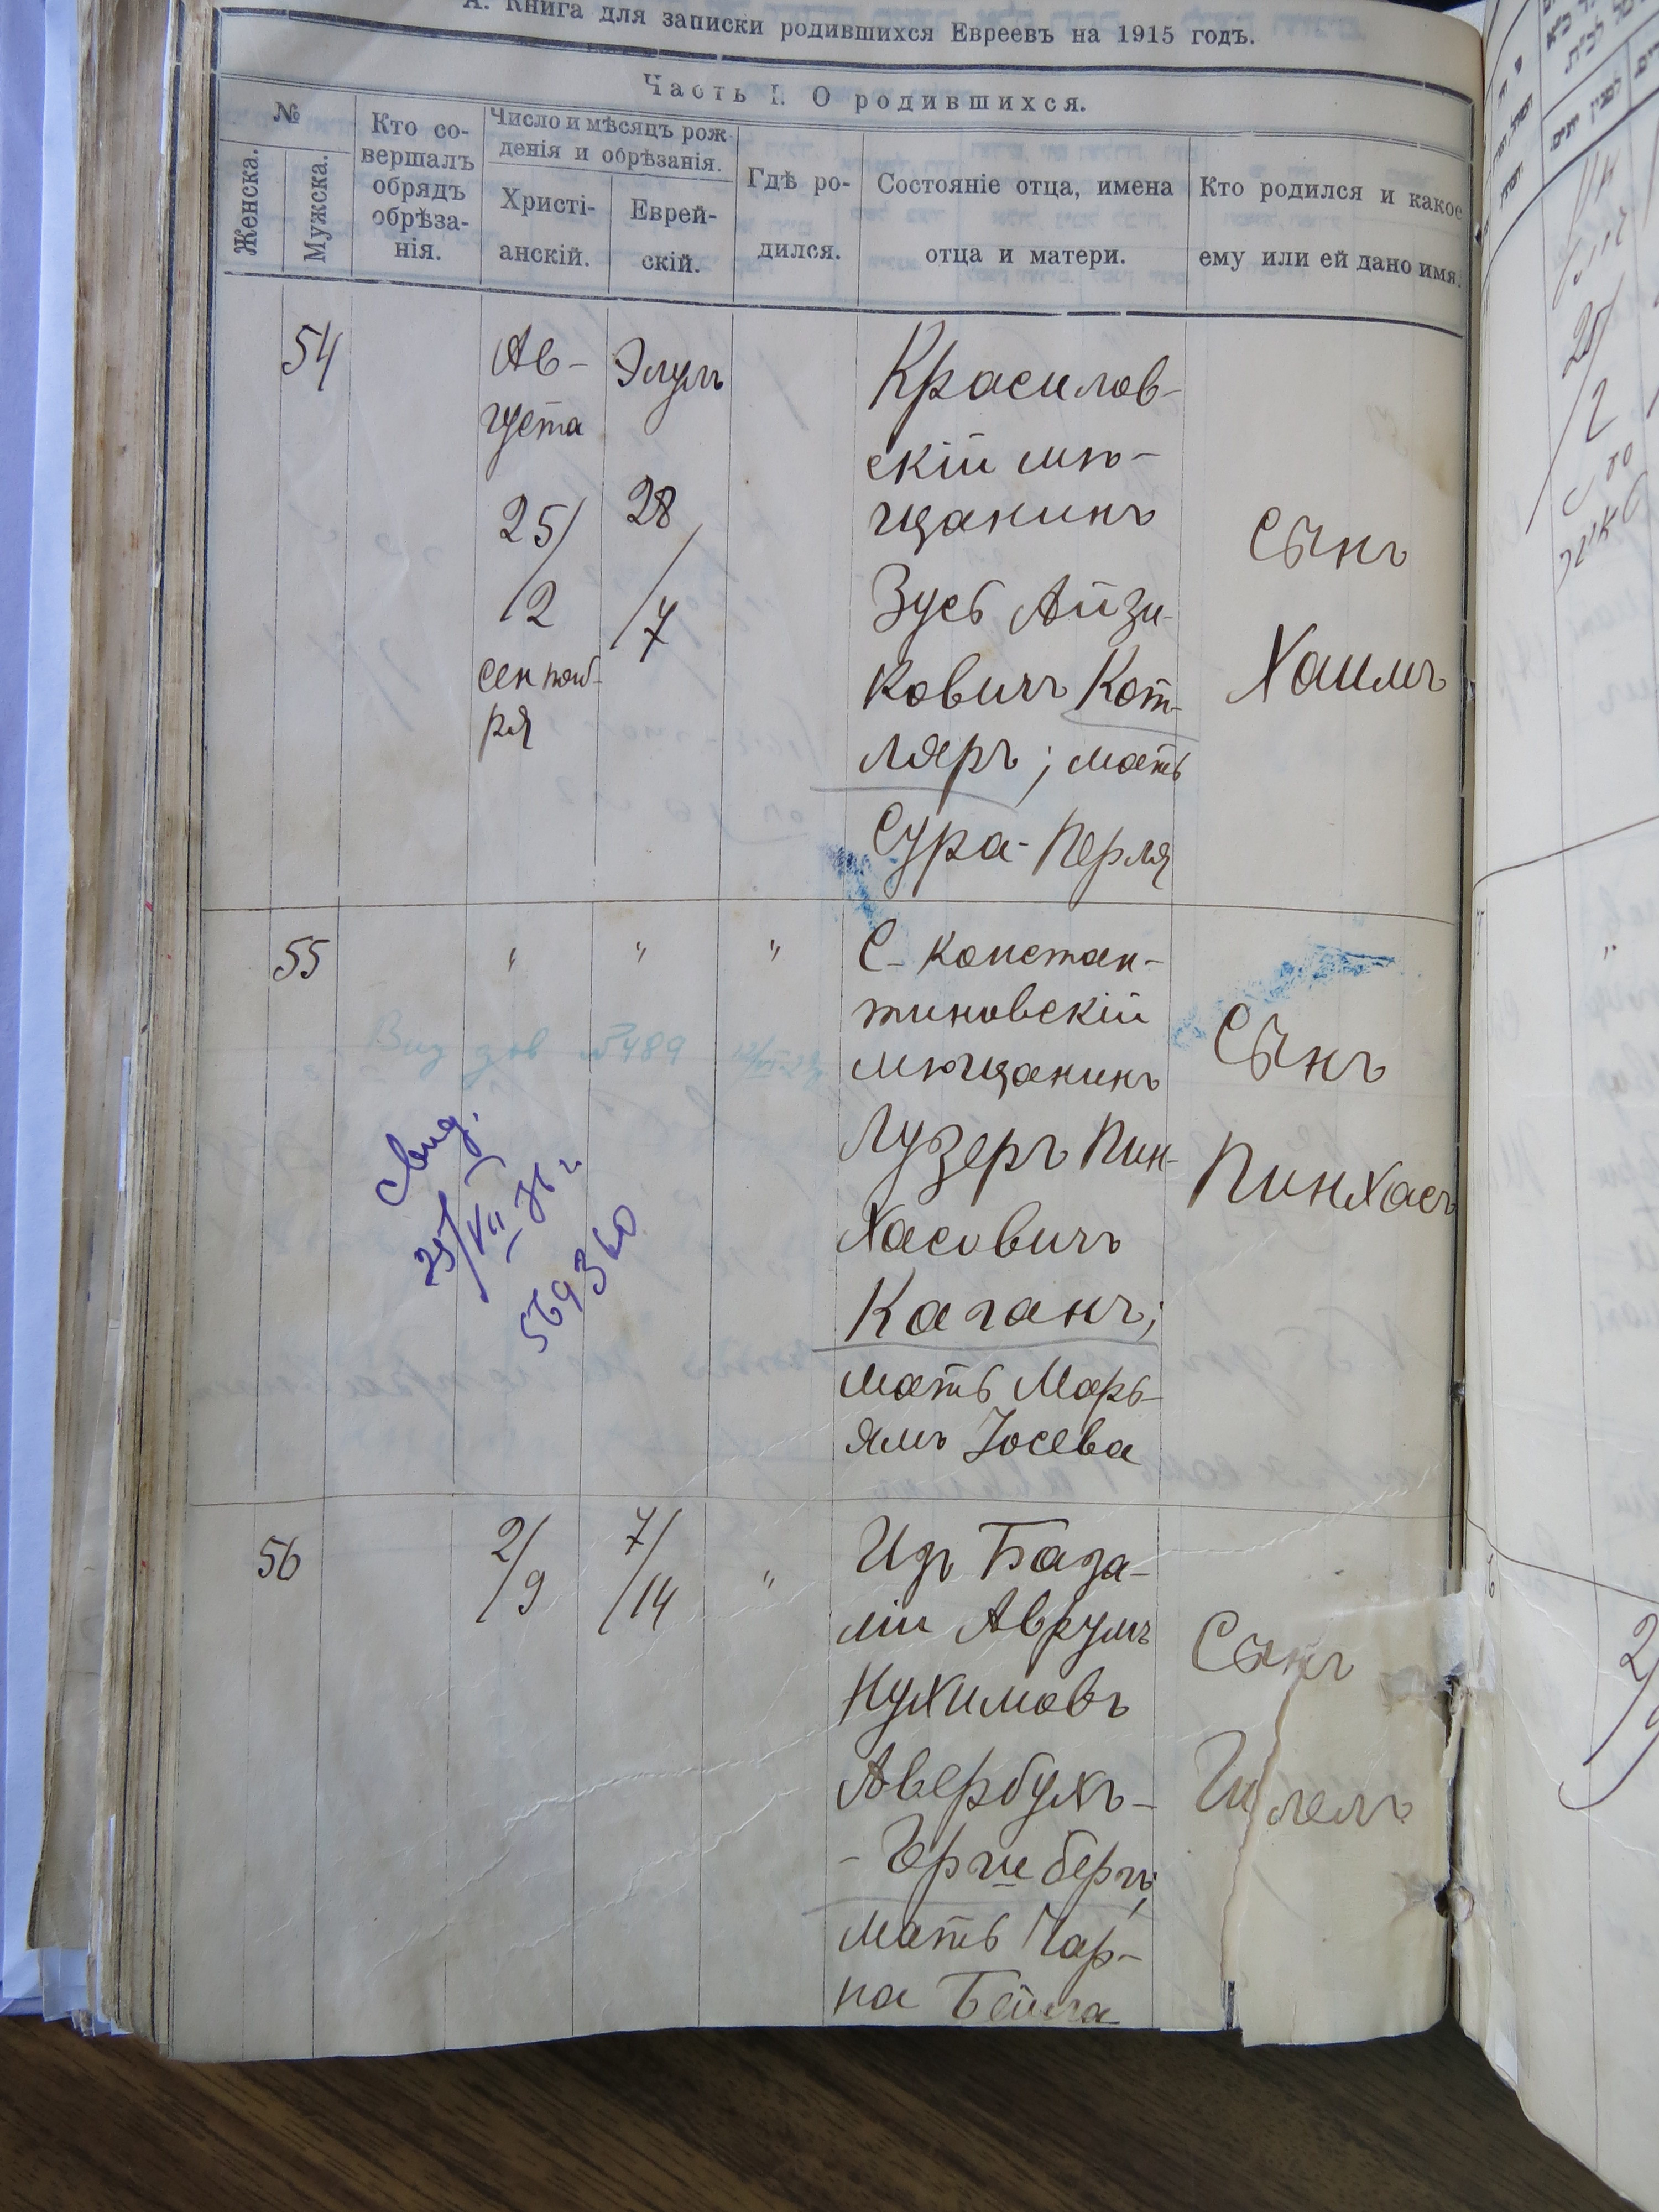 А. Книга для записки родившихся Евреевъ на 1915 годъ.
Часть I. О родившихся.
№
Женска.
Мужска.
Кто со-
вершалъ
обрядъ
обрѣза-
нія.
Число и мѣсяцъ рож
денія и обрѣзанія.
Христі-
анскій.
Еврей-
скій.
Гдѣ ро-
дился.
Состояніе отца, имена
отца и матери.
Кто родился и какое
ему или ей дано имя.
54
Ав-
густа
25/
/2
сентяб-
ря
Элулъ
28
/
/7
Красилов-
скій мѣ-
щанинъ
Зусь Айзи-
ковичъ Кот-
ляръ; мать
Сура-Перля
Сынъ
Хаимъ
55
"
"
"
С-констан-
тиновскій
мѣщанинъ
Лузеръ Пин-
хасовичъ
Каганъ;
мать Марь-
ямъ Іосева
Сынъ
Пинхасъ
Вид №489
Свид.
25/VII 76 г.
569360
56
2/
/9
7/
/14
"
Изъ База-
ліи Аврумъ
Нухимовъ
Авербухъ-
-Гершберг;
мать Чар-
на Бейла
Сынъ
Гилелъ